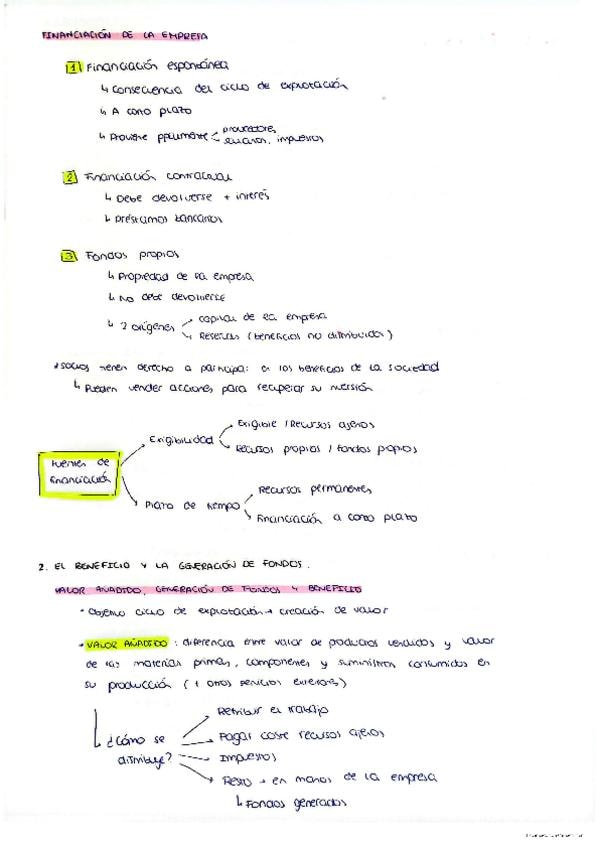 FINANCIACIÓN DE LA EMPRESA
1 Financiación espontánea
↳ Consecuencia del ciclo de explotación
↳ A corto plazo
↳ Proviene ppalmente < proveedores,
salarios, impuestos
2 Financiación contractual
↳ Debe devolverse + interés
↳ Préstamos bancarios
3 Fondos propios
↳ Propiedad de la empresa
↳ No debe devolverse
↳ 2 orígenes
capital de la empresa
Reservas (beneficios no distribuidos)
socios tienen derecho a participar en los beneficios de la sociedad
↳ Pueden vender acciones para recuperar su inversión
Fuentes de
financiación
Exigibilidad
Exigible / Recursos ajenos
Recursos propios / fondos propios
Plazo de tiempo
Recursos permanentes
Financiación a corto plazo
2. EL BENEFICIO Y LA GENERACIÓN DE FONDOS.
VALOR AÑADIDO, GENERACIÓN DE FONDOS Y BENEFICIO
· Objetivo ciclo de explotación → creación de valor
· VALOR AÑADIDO: diferencia entre valor de productos vendidos y valor
de las materias primas, componentes y suministros consumidos en
su producción (+ otros servicios exteriores)
↳ ¿Cómo se
distribuye?
Retribuir el trabajo
Pagar coste recursos ajenos
Impuestos
Resto → en manos de la empresa
↳ Fondos generados